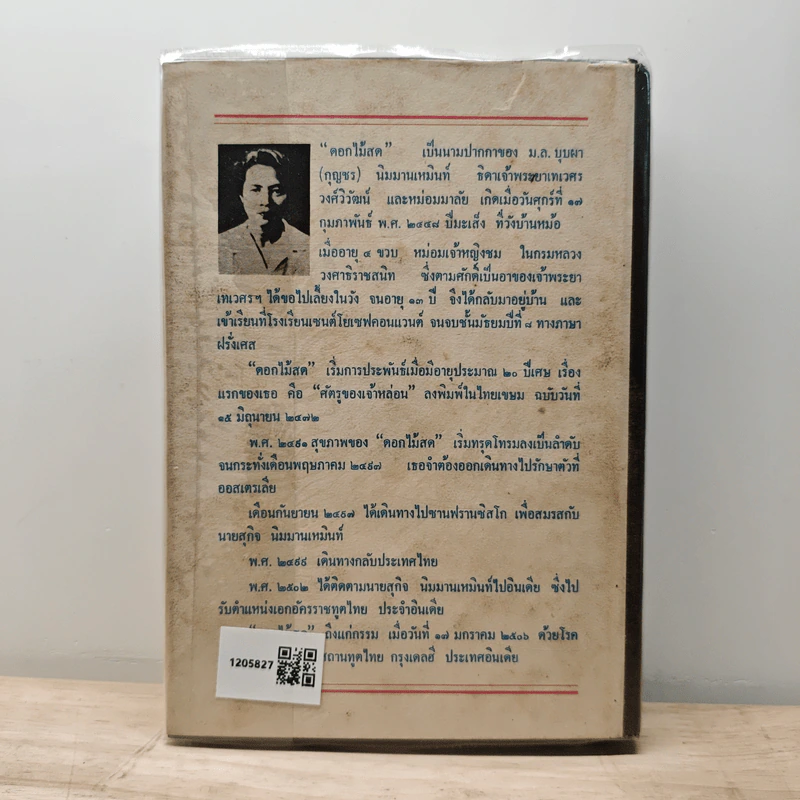 “ดอกไม้สด” เป็นนามปากกาของ ม.ล. บุบผา
(กุญชร) นิมมานเหมินท์ ธิดาเจ้าพระยาเทเวศร
วงศ์วิวัฒน์ และหม่อมมาลัย เกิดเมื่อวันศุกร์ที่ ๑๗
กุมภาพันธ์ พ.ศ. ๒๔๔๘ ปีมะเส็ง ที่วังบ้านหม้อ
เมื่ออายุ ๔ ขวบ หม่อมเจ้าหญิงชม ในกรมหลวง
วงศาธิราชสนิท ซึ่งตามศักดิ์เป็นอาของเจ้าพระยา
เทเวศรฯ ได้ขอไปเลี้ยงในวัง จนอายุ ๑๓ ปี จึงได้กลับมาอยู่บ้าน และ
เข้าเรียนที่โรงเรียนเซนต์โยเซฟคอนแวนต์ จนจบชั้นมัธยมปีที่ ๘ ทางภาษา
ฝรั่งเศส
“ดอกไม้สด” เริ่มการประพันธ์เมื่อมีอายุประมาณ ๒๐ ปีเศษ เรื่อง
แรกของเธอ คือ “ศัตรูของเจ้าหล่อน” ลงพิมพ์ในไทยเขษม ฉบับวันที่
๑๕ มิถุนายน ๒๔๗๒
พ.ศ. ๒๔๙๑ สุขภาพของ “ดอกไม้สด” เริ่มทรุดโทรมลงเป็นลำดับ
จนกระทั่งเดือนพฤษภาคม ๒๔๙๗ เธอจำต้องออกเดินทางไปรักษาตัวที่
ออสเตรเลีย
เดือนกันยายน ๒๔๙๗ ได้เดินทางไปซานฟรานซิสโก เพื่อสมรสกับ
นายสุกิจ นิมมานเหมินท์
พ.ศ. ๒๔๙๙ เดินทางกลับประเทศไทย
พ.ศ. ๒๕๐๒ ได้ติดตามนายสุกิจ นิมมานเหมินท์ไปอินเดีย ซึ่งไป
รับตำแหน่งเอกอัครราชทูตไทย ประจำอินเดีย
ถึงแก่กรรม เมื่อวันที่ ๑๗ มกราคม ๒๕๐๖ ด้วยโรค
สถานทูตไทย กรุงเดลฮี ประเทศอินเดีย
1205827